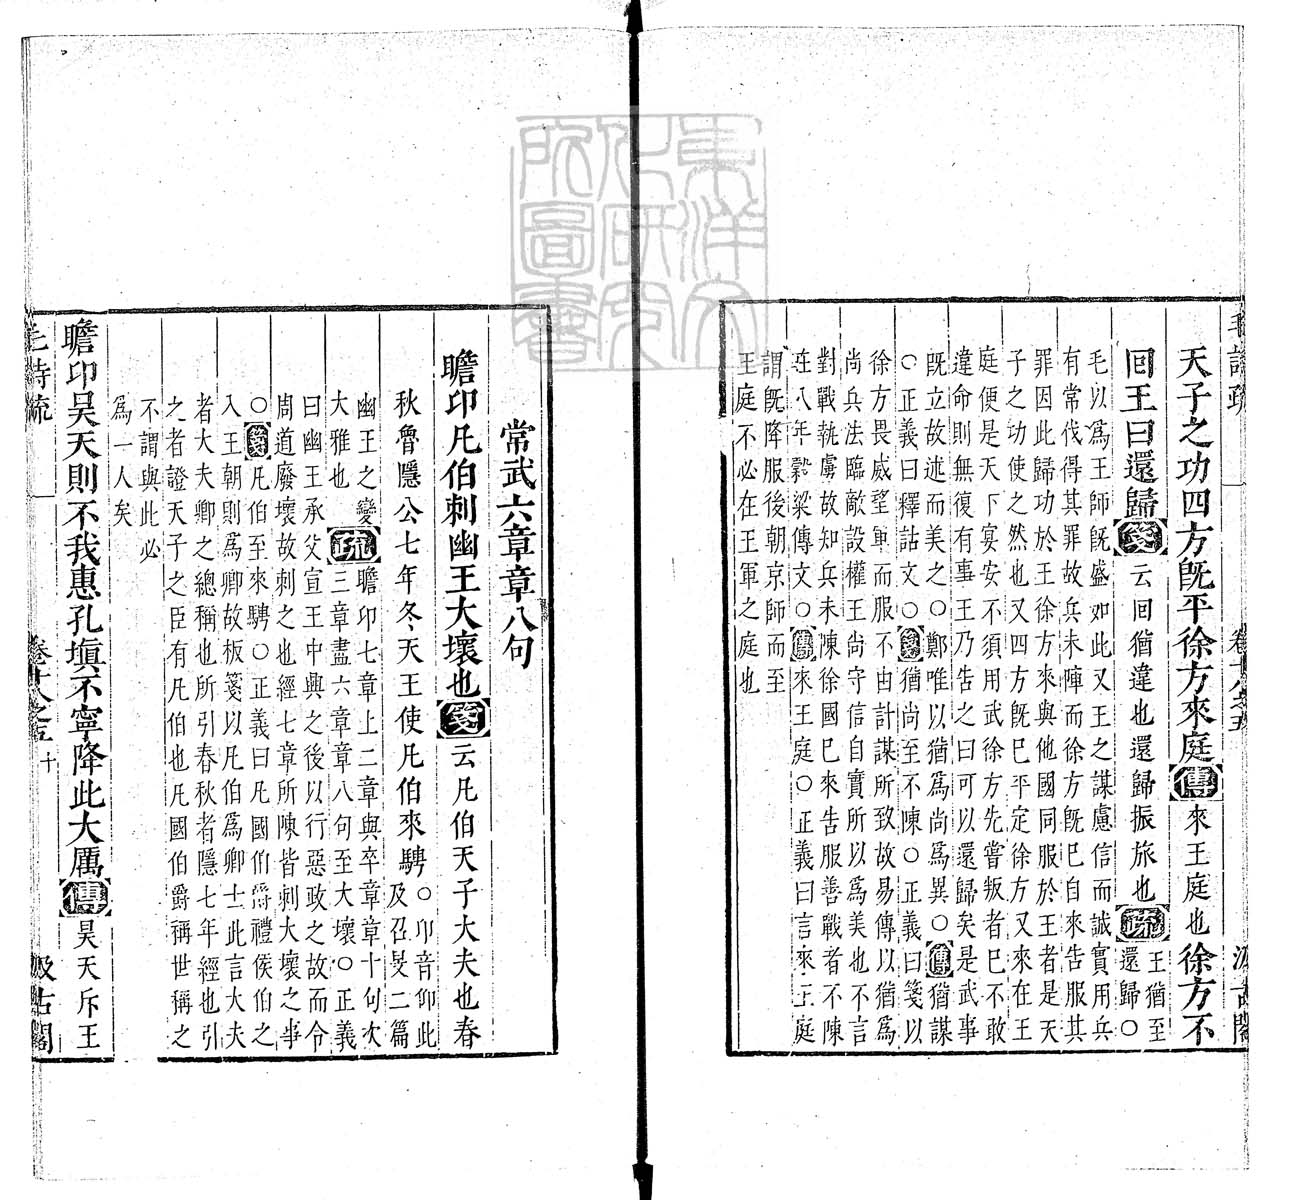 毛詩疏　卷十八之五　汲古閣
天子之功四方既平徐方來庭傳來王庭也徐方不
回王曰還歸箋云回猶違也還歸振旅也疏王猶至
還歸○
毛以爲王師既盛如此又王之謀慮信而誠實用兵
有常伐得其罪故兵未陣而徐方既巳自來告服其
罪因此歸功於王徐方來與他國同服於王者是天
子之功使之然也又四方既巳平定徐方又來在王
庭便是天下宴安不須用武徐方先嘗叛者巳不敢
違命則無復有事王乃告之曰可以還歸矣是武事
既立故述而美之○鄭唯以猶爲尚爲異○傳猶謀
○正義曰釋詁文○箋猶尚至不陳○正義曰箋以
徐方畏威望軍而服不由計謀所致故易傳以猶爲
尚兵法臨敵設權王尚守信自實所以爲美也不言
對戰執虜故知兵未陳徐國巳來告服善戰者不陳
莊八年穀梁傳文○傳來王庭○正義曰言來王庭
謂既降服後朝京師而至
王庭不必在王軍之庭也
常武六章章八句
瞻卬凡伯刺幽王大壞也箋云凡伯天子大夫也春
秋魯隱公七年冬天王使凡伯來騁○卬音仰此
及召旻二篇
幽王之變
大雅也疏瞻卬七章上二章與卒章章十句次
三章盡六章章八句至大壞○正義
曰幽王承父宣王中興之後以行惡政之故而令
周道廢壞故刺之也經七章所陳皆刺大壞之事
○箋凡伯至來騁○正義曰凡國伯爵禮侯伯之
入王朝則爲卿故板箋以凡伯爲卿士此言大夫
者大夫卿之總稱也所引春秋者隱七年經也引
之者證天子之臣有凡伯也凡國伯爵稱世稱之
不謂與此必
爲一人矣
瞻卬昊天則不我惠孔塡不寧降此大厲傳昊天斥王
毛詩疏　卷十八之五　十　汲古閣
東洋文化研究所圖書